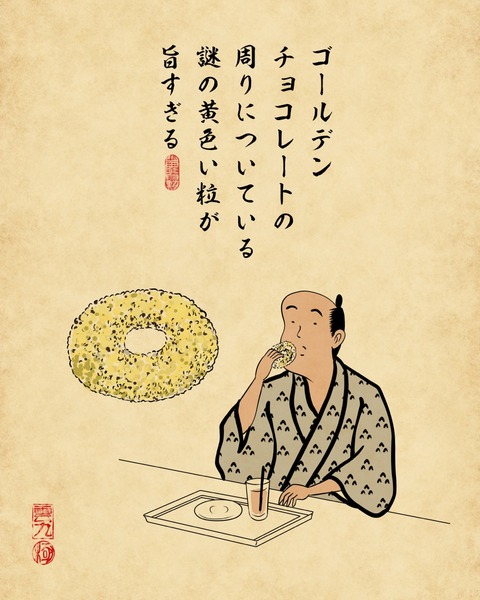 ゴールデン
チョコレートの
周りについている
謎の黄色い粒が
旨すぎる